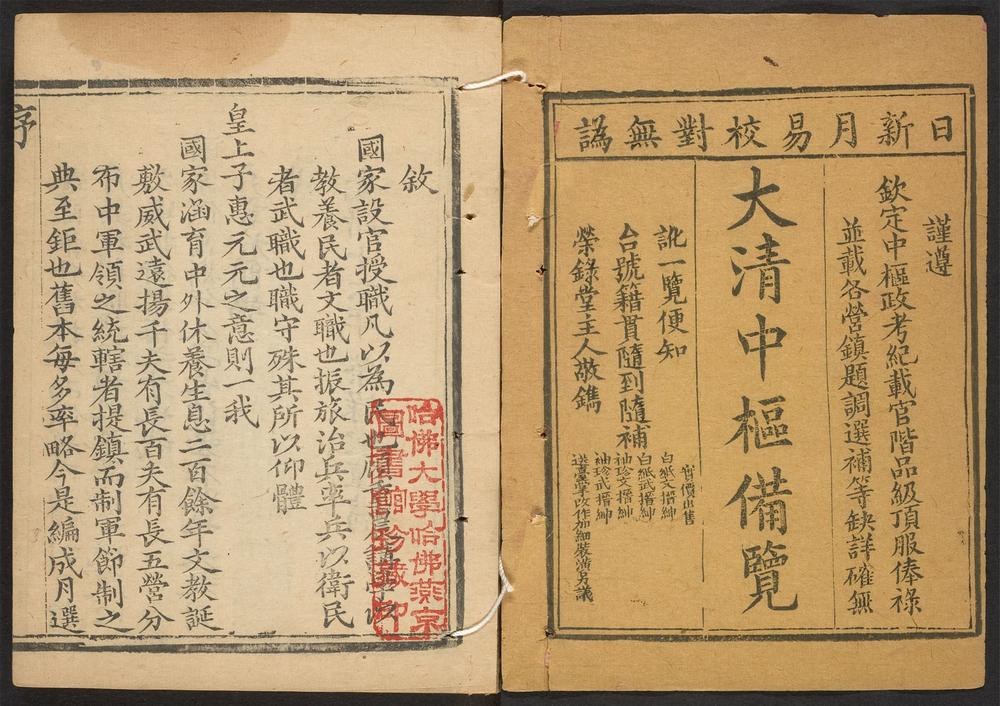 日新月易校對無譌
謹遵
欽定中樞政考紀載官階品級頂服俸祿
並載各營鎮題調選補等缺詳確無
大清中樞備覽
訛一覽便知
台號籍貫隨到隨補
榮錄堂主人敬鐫
實價出售
白紙文搢紳
白紙武搢紳
袖珍文搢紳
袖珍武搢紳
改作加細裝潢另議
敘
國家設官授職凡以為民也學以
教養民者文職也振旅治兵率兵以衛民
者武職也職守殊其所以仰體
皇上子惠元元之意則一我
國家涵育中外休養生息二百餘年文教誕
敷威武遠揚千夫有長百夫有長五營分
布中軍領之統轄者提鎮而制軍節制之
典至鉅也舊本每多率略今是編成月選
序
哈佛大學哈佛燕京
圖書館珍藏印